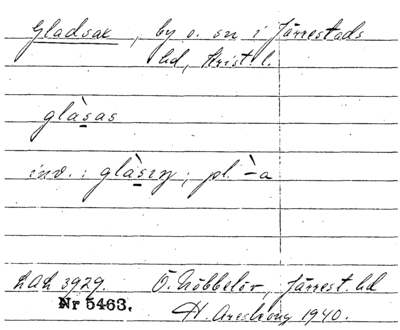 Gladsax, by o. sn i Järrestads
hd, Krist l.
glàsas
inv.: glàsıŋ; pl. -̀a
LAL 3929. Ö. Nöbbelöv, Järrest. hd
Nr 5463. H. Areskoug 1940.